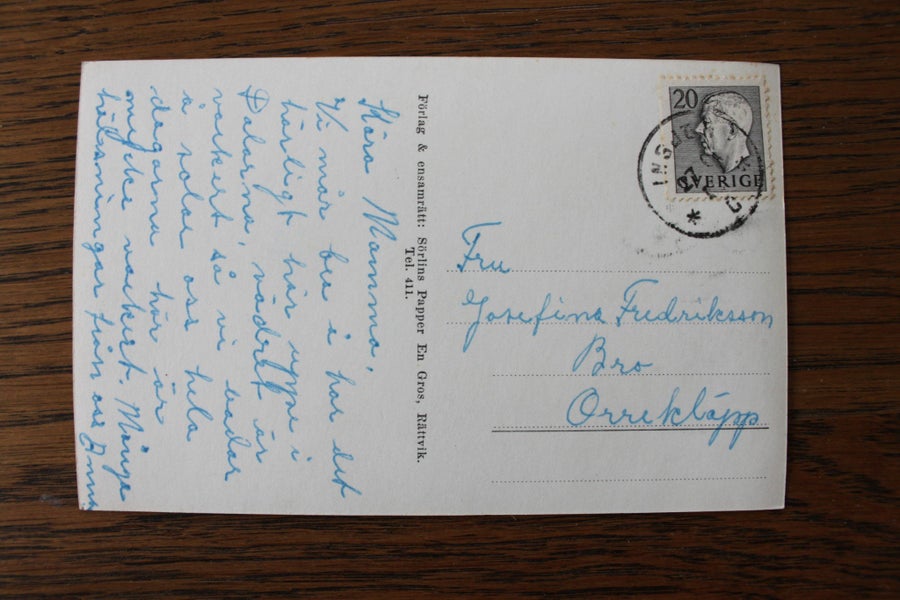 Kära Mamma,
Vi mår bra å har det
härligt här uppe i
Dalarna, vädret är
vackert så vi badar
å solar oss hela
dagarna här är
mycke vackert. Många
hälsningar från oss
Förlag & ensamrätt: Sörlins Papper En Gros, Rättvik.
Tel. 411.
20
SVERIGE
Fru
Josefina Fredriksson
Bro
Orrekläpp